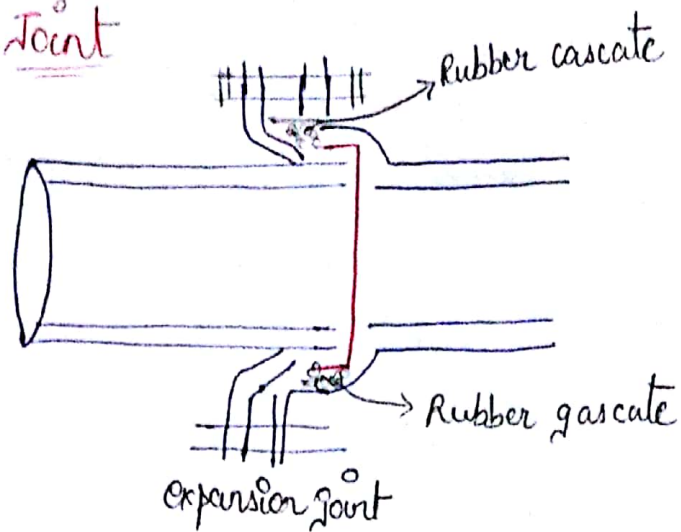 Joint
Rubber cascate
Rubber gascate
expansion joint